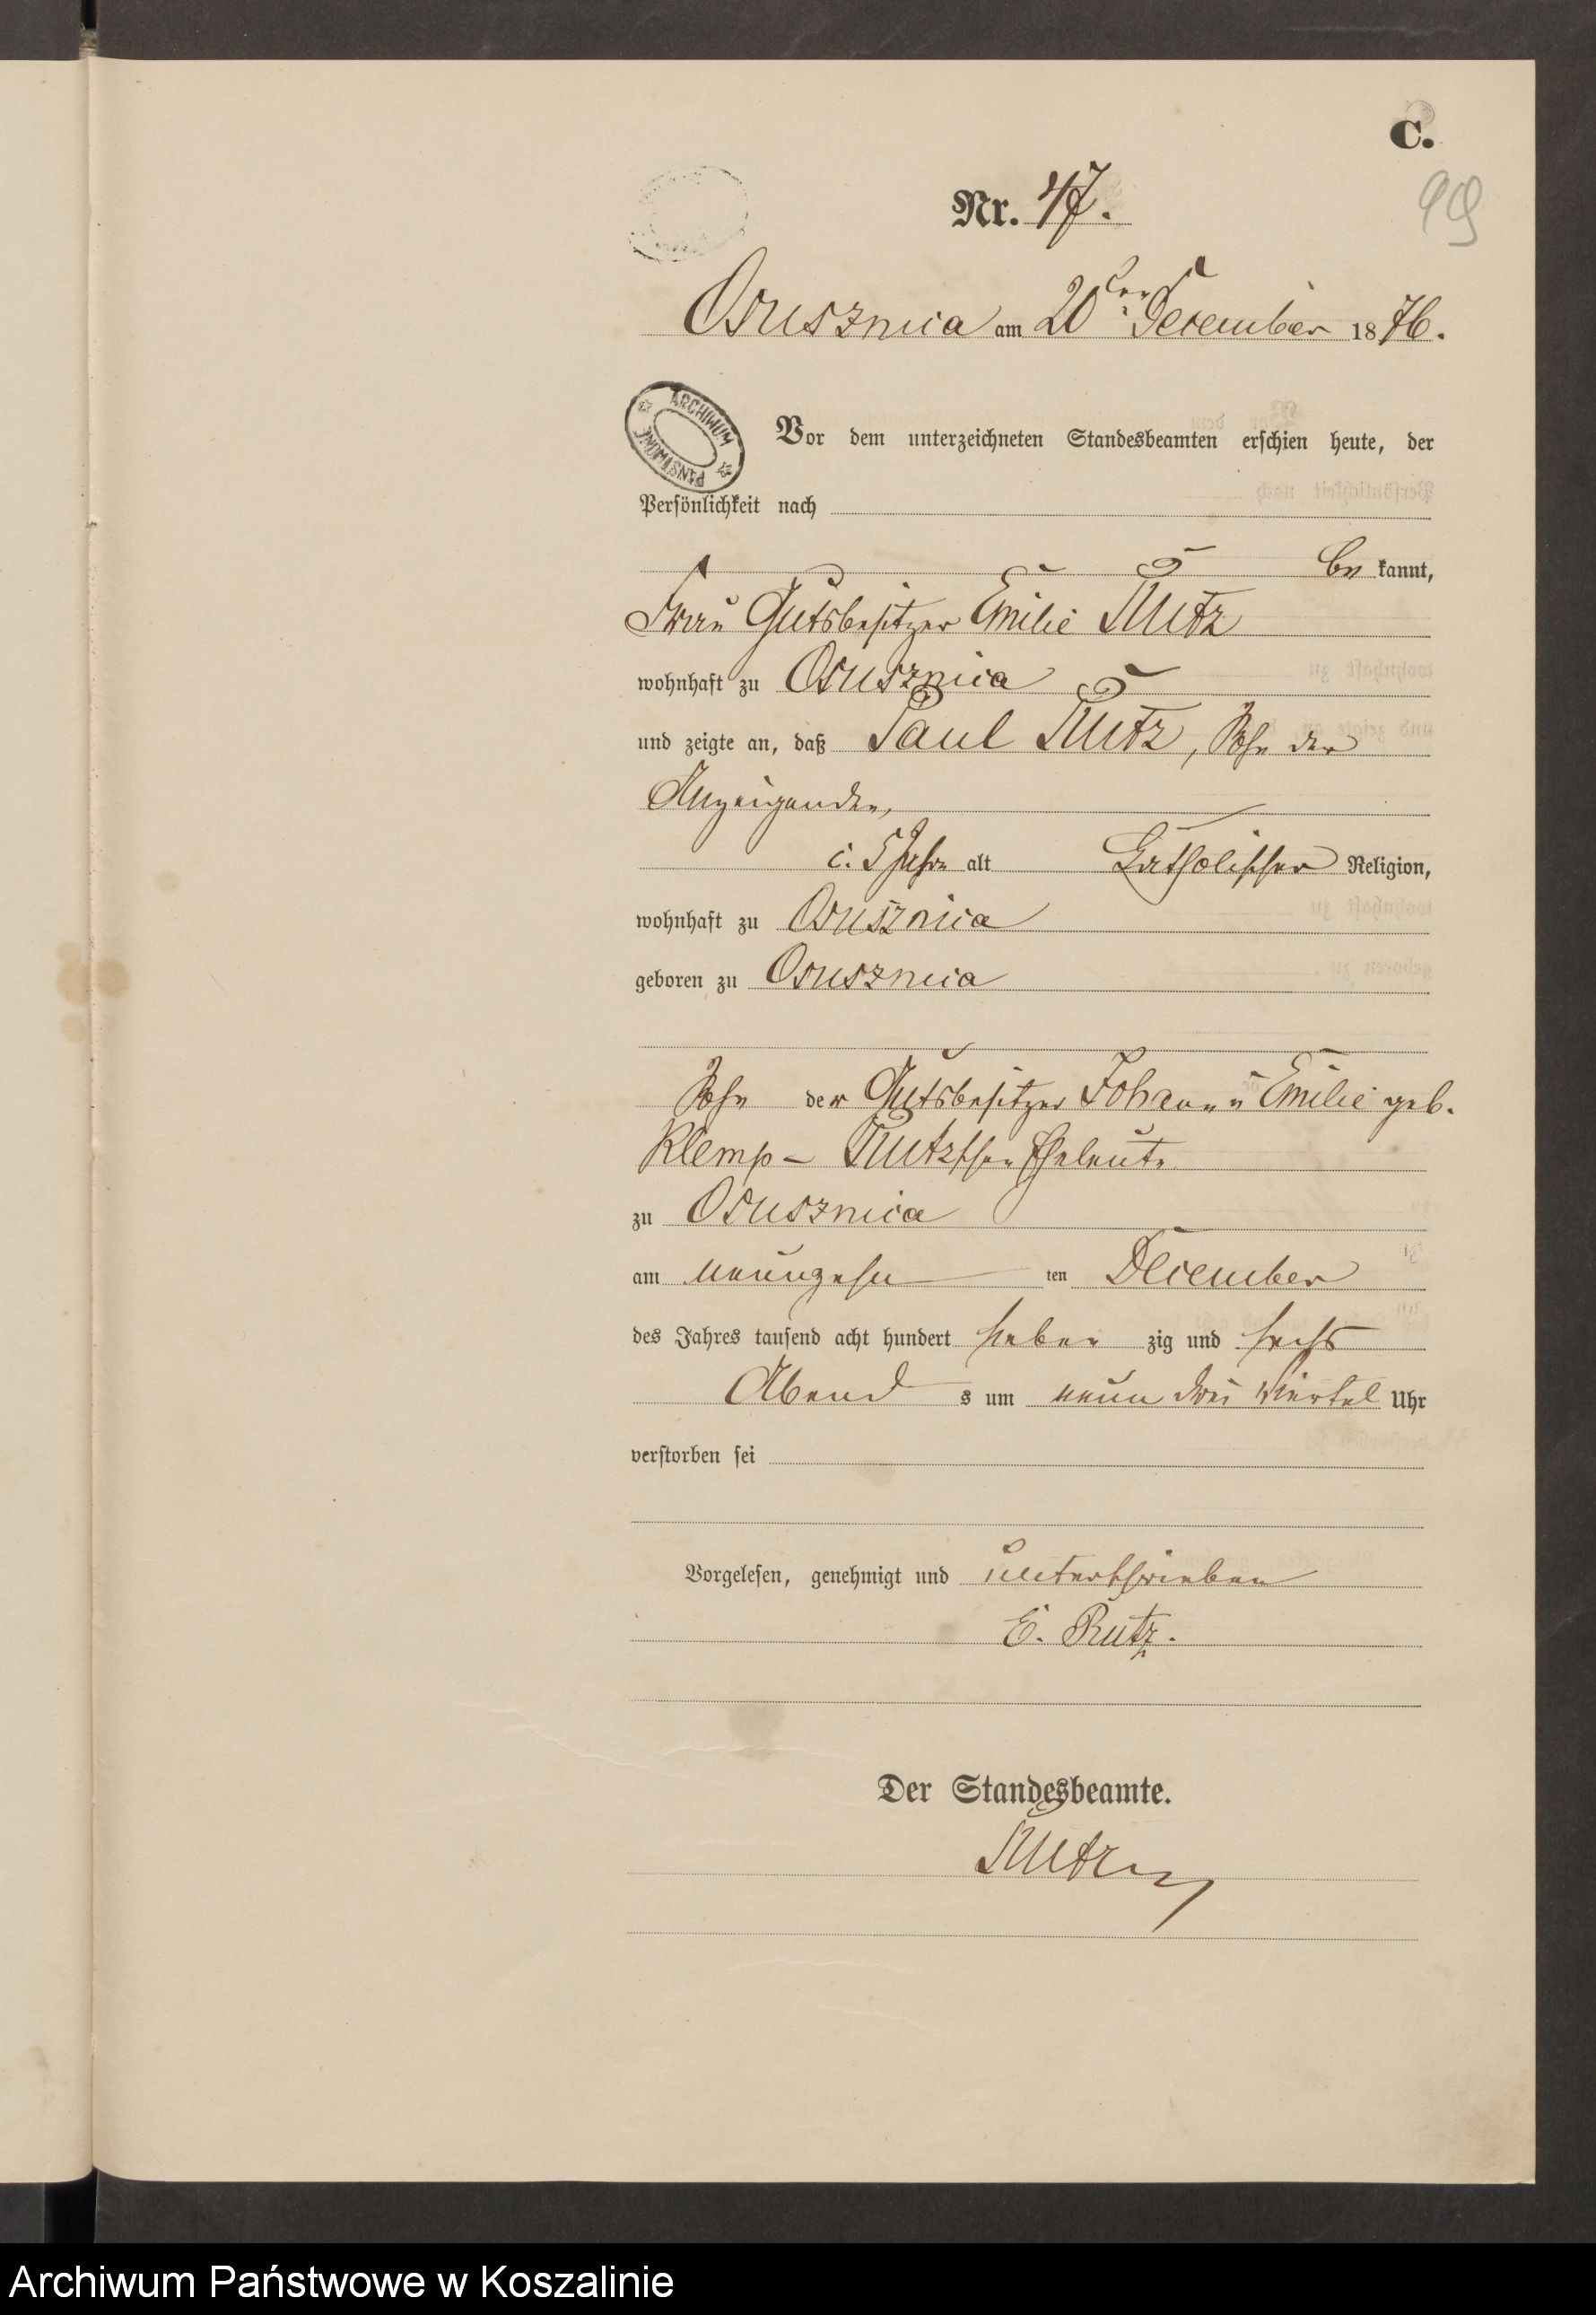 C.
Nr. 47.
99
Osusznica am 20ten December 1876.
ARCHIWUM PAŃSTWOWE
Vor dem unterzeichneten Standesbeamten erschien heute, der
Persönlichkeit nach
be kannt,
Frau Gutsbesitzer Emilie Rutz
wohnhaft zu Osusznica
und zeigte an, daß Paul Rutz, Sohn der
Anzeigenden,
c. 5 Jahre alt katholischer Religion,
wohnhaft zu Osusznica
geboren zu Osusznica
Sohn der Gutsbesitzer Johann u Emilie geb.
Klemp - Rutzschen Eheleute
zu Osusznica
am neunzehn ten December
des Jahres tausend acht hundert sieben zig und sechs
Abend s um neun drei Viertel Uhr
verstorben sei
Vorgelesen, genehmigt und unterschrieben
E. Rutz.
Der Standesbeamte.
Rutz
Archiwum Państwowe w Koszalinie